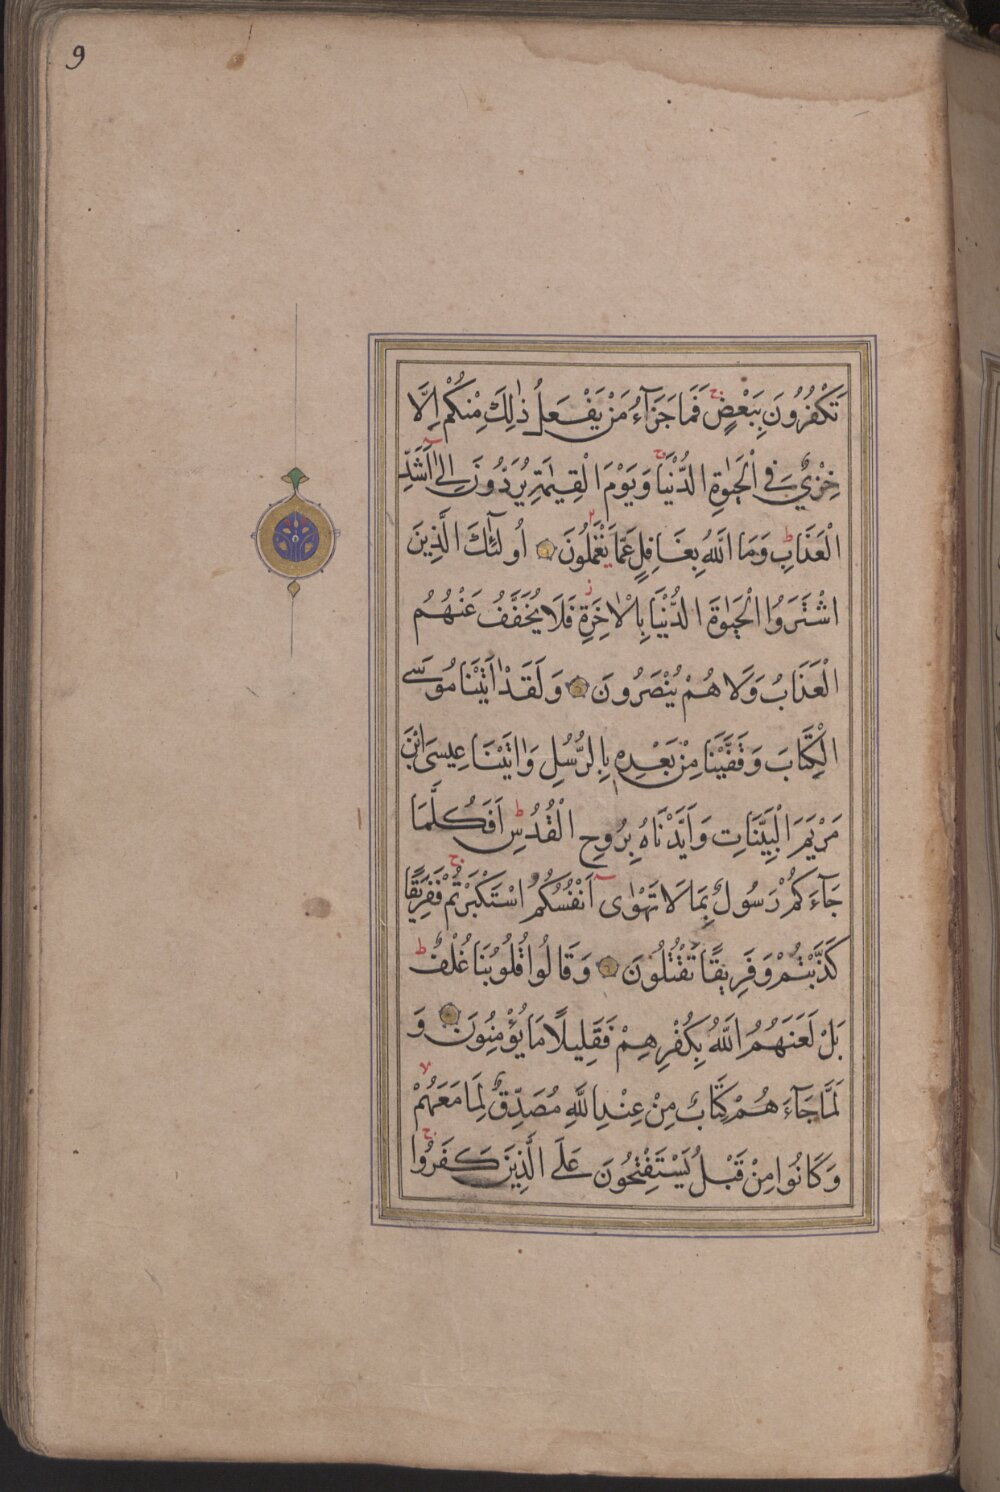 9
تَكْفُرُونَ بِبَعْضٍ فَمَا جَزَآءُ مَنْ يَفْعَلُ ذٰلِكَ مِنْكُمْ اِلَّا
خِزْيٌ فِي الْحَيٰوةِ الدُّنْيَا وَيَوْمَ الْقِيٰمَةِ يُرَدُّونَ اِلٰى اَشَدِّ
الْعَذَابِ وَمَا اللّٰهُ بِغَافِلٍ عَمَّا يَعْمَلُونَ اُولٰٓئِكَ الَّذِينَ
اشْتَرَوُا الْحَيٰوةَ الدُّنْيَا بِالْاٰخِرَةِ فَلَا يُخَفَّفُ عَنْهُمُ
الْعَذَابُ وَلَا هُمْ يُنْصَرُونَ وَلَقَدْ اٰتَيْنَا مُوسَى
الْكِتَابَ وَقَفَّيْنَا مِنْ بَعْدِهٖ بِالرُّسُلِ وَاٰتَيْنَا عِيسَى ابْنَ
مَرْيَمَ الْبَيِّنَاتِ وَاَيَّدْنَاهُ بِرُوحِ الْقُدُسِ اَفَكُلَّمَا
جَآءَكُمْ رَسُولٌ بِمَا لَا تَهْوٰى اَنْفُسُكُمُ اسْتَكْبَرْتُمْ فَفَرِيقًا
كَذَّبْتُمْ وَفَرِيقًا تَقْتُلُونَ وَقَالُوا قُلُوبُنَا غُلْفٌ
بَلْ لَعَنَهُمُ اللّٰهُ بِكُفْرِهِمْ فَقَلِيلًا مَا يُؤْمِنُونَ وَ
لَمَّا جَآءَهُمْ كِتَابٌ مِنْ عِنْدِ اللّٰهِ مُصَدِّقٌ لِمَا مَعَهُمْ
وَكَانُوا مِنْ قَبْلُ يَسْتَفْتِحُونَ عَلَى الَّذِينَ كَفَرُوا